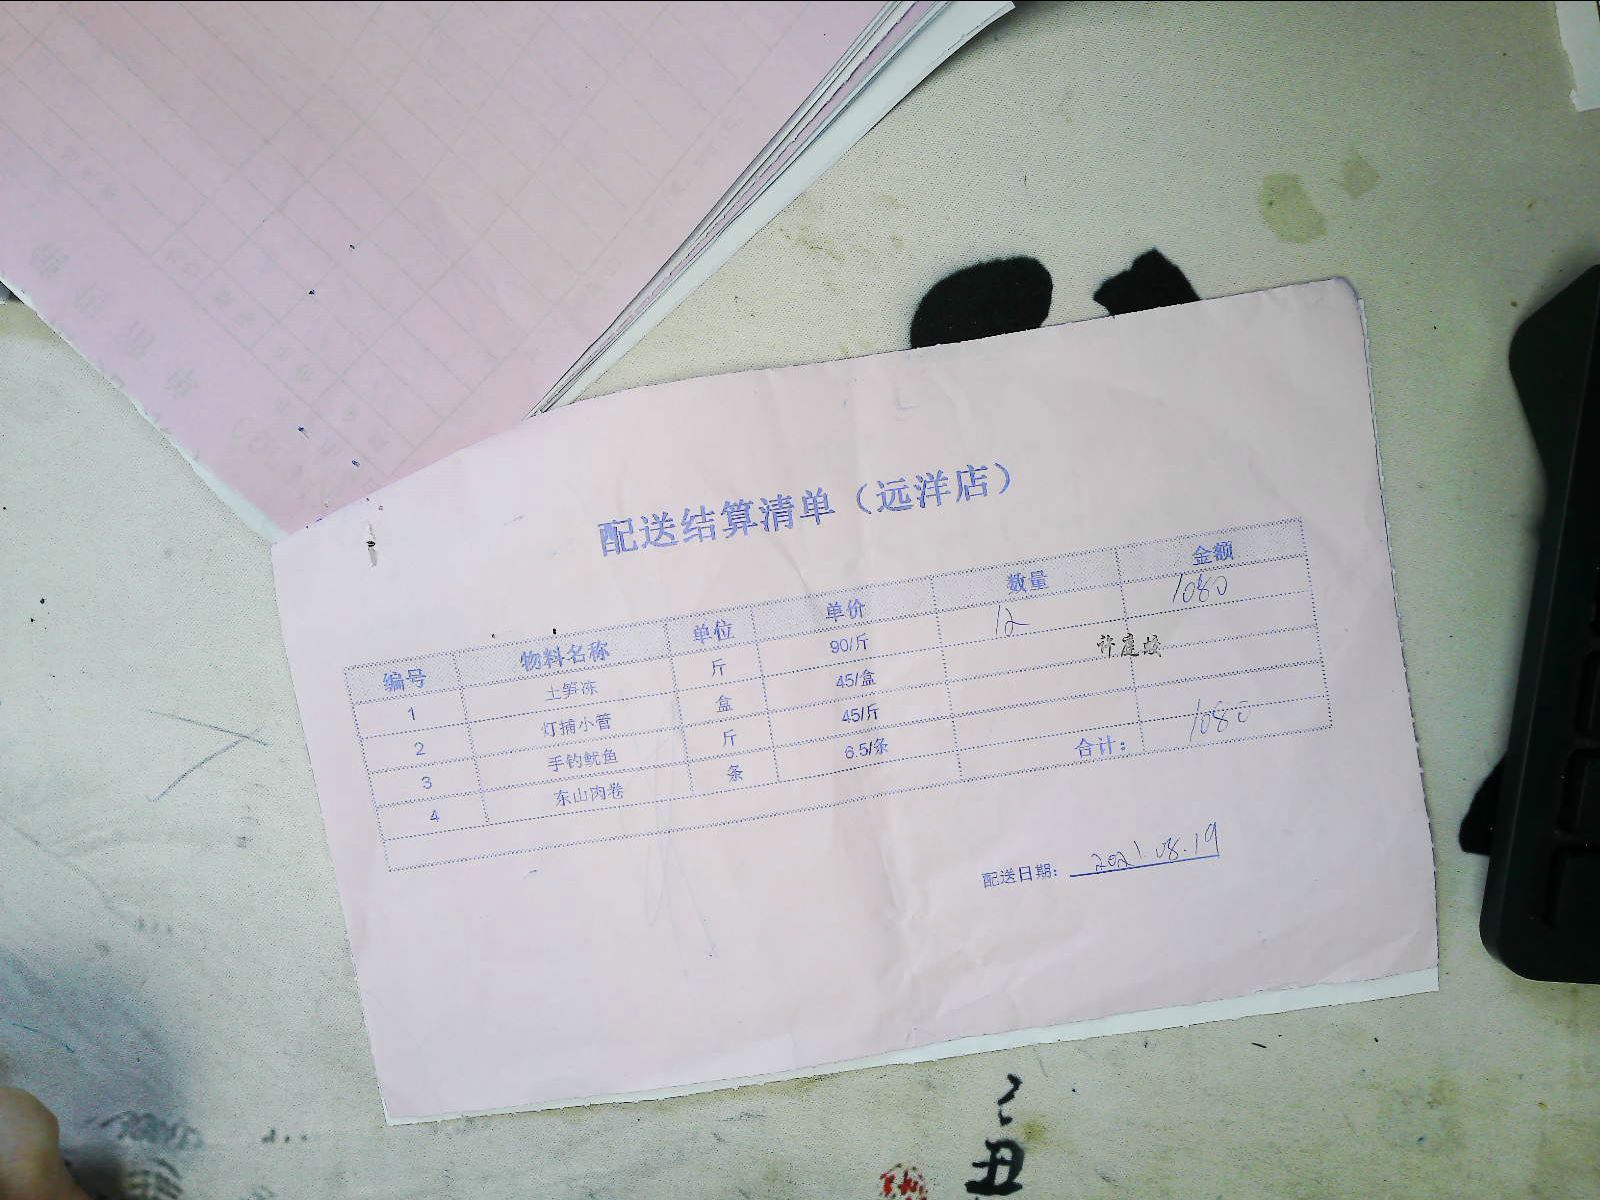 配送结算清单（远洋店）
编号 物料名称 单位 单价 数量 金额
1 土笋冻 斤 90/斤 12 1080
2 灯捕小管 盒 45/盒
3 手钓鱿鱼 斤 45/斤
4 东山肉卷 条 6.5/条
合计： 1080
配送日期： 2021.08.19
丑